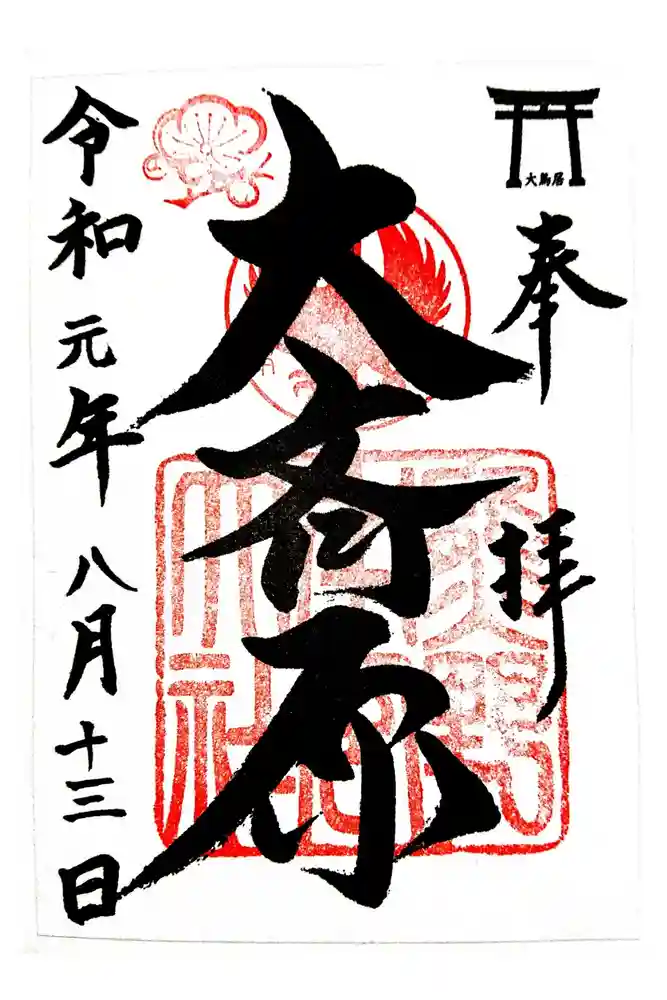 大鳥居
奉拝
大斎原
令和元年八月十三日